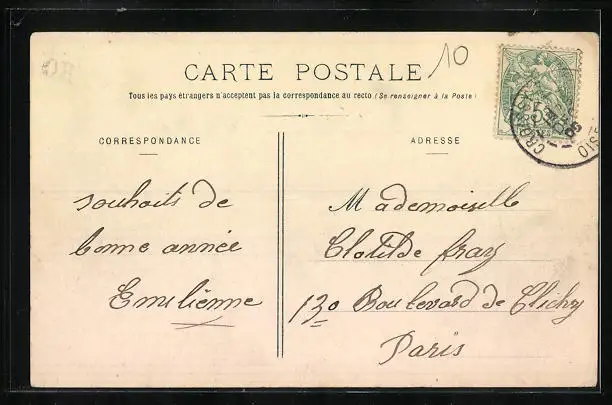 10
CARTE POSTALE
Tous les pays étrangers n'acceptent pas la correspondance au recto (Se renseigner à la Poste)
CORRESPONDANCE
souhaits de
bonne année
Emilienne
ADRESSE
Mademoiselle
Clotilde Fray
130 Boulevard de Clichy
Paris
OISE